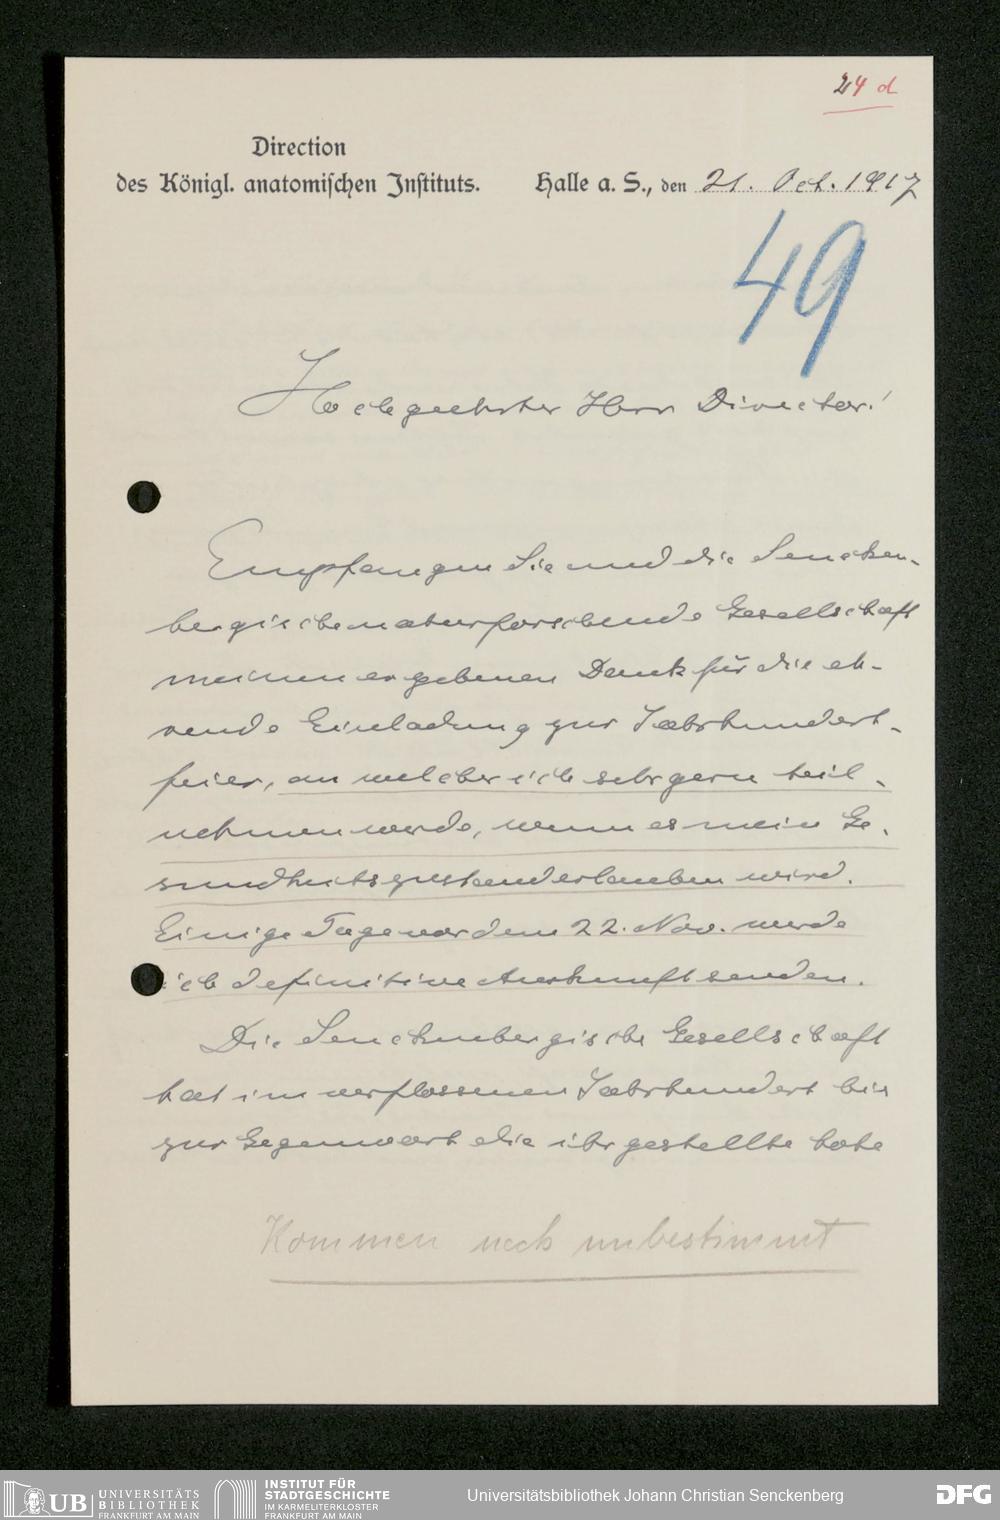 24 d
Direction
des Königl. anatomischen Instituts.
Halle a. S., den 21. Oct. 1917
49
Hochgeehrter Herr Director!
Empfangen Sie und die Sencken-
bergische naturforschende Gesellschaft
meinen ergebenen Dank für die eh-
rende Einladung zur Jahrhundert-
feier, an welcher ich sehr gern teil-
nehmen werde, wenn es mein Ge-
sundheitszustand erlauben wird.
Einige Tage vor dem 22. Nov. werde
ich definitive Auskunft senden.
Die Senckenbergische Gesellschaft
hat im verflossenen Jahrhundert bis
zur Gegenwart die ihr gestellte hohe
Kommen noch unbestimmt
UB UNIVERSITÄTS
BIBLIOTHEK
FRANKFURT AM MAIN
INSTITUT FÜR
STADTGESCHICHTE
IM KARMELITERKLOSTER
FRANKFURT AM MAIN
Universitätsbibliothek Johann Christian Senckenberg
DFG